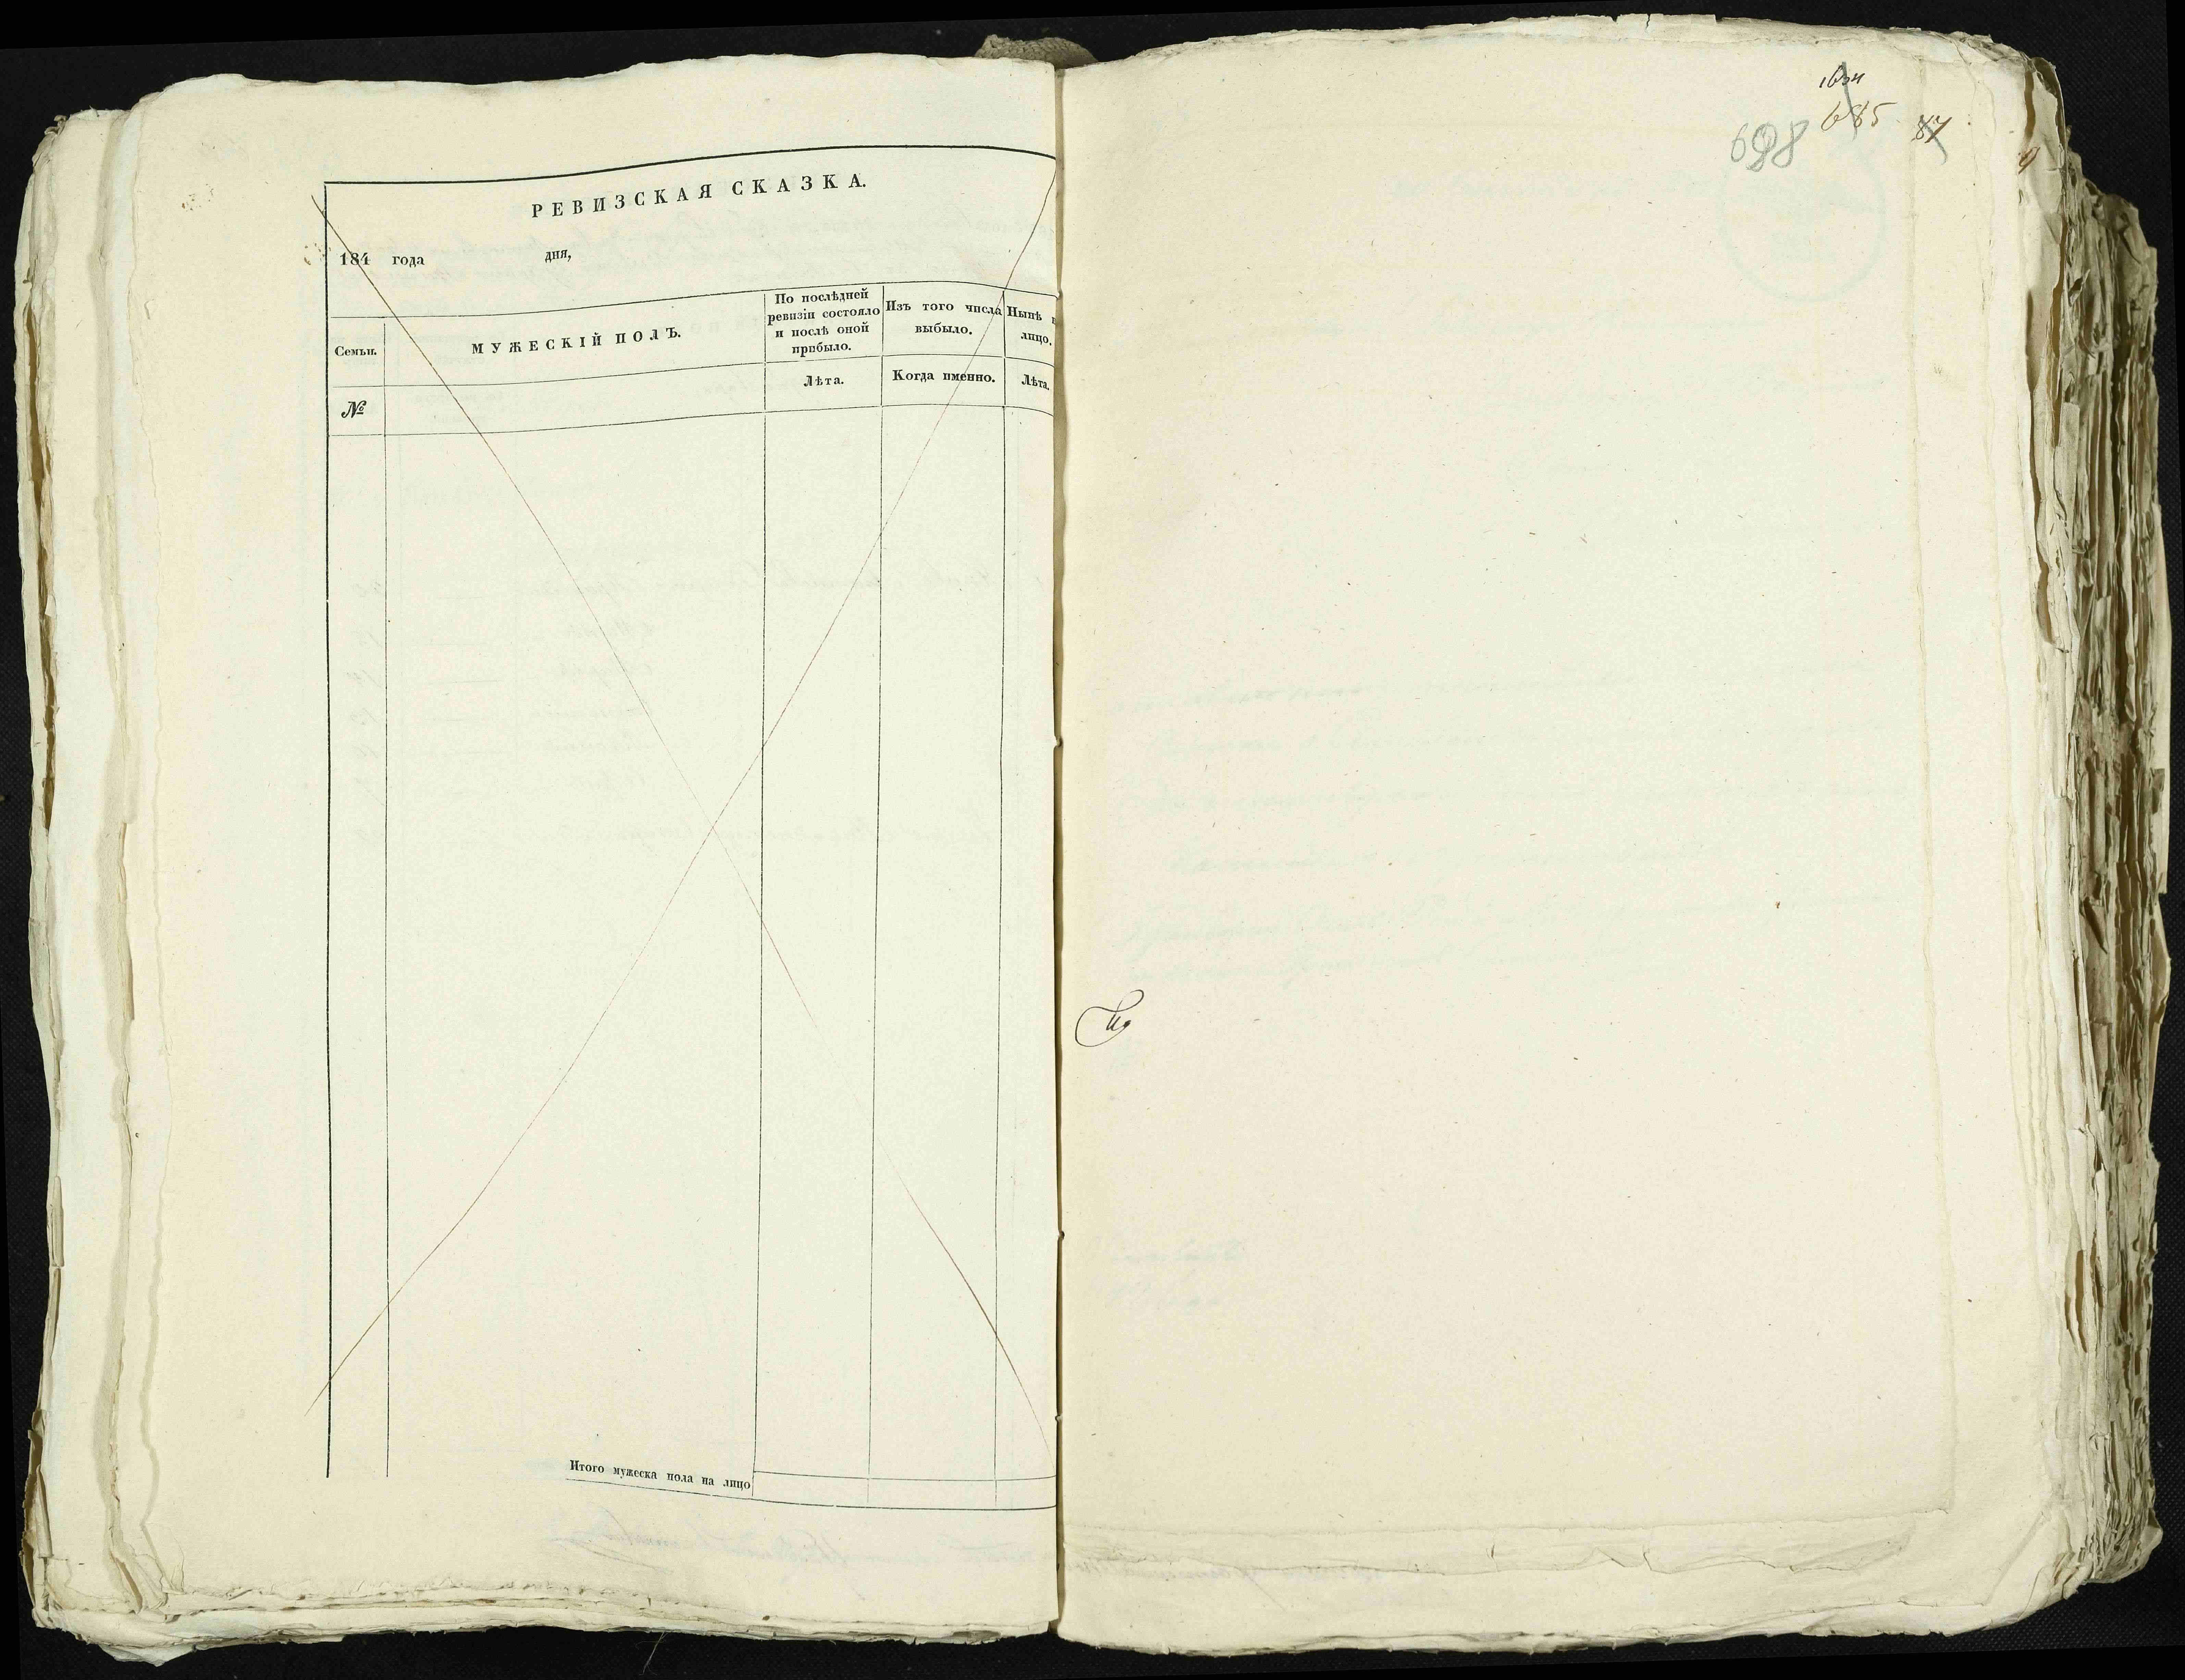 РЕВИЗСКАЯ СКАЗКА.
184 года дня,
Семьи.
МУЖЕСКІЙ ПОЛЪ.
По послѣдней
ревизіи состояло
и послѣ оной
прибыло.
Изъ того числа
выбыло.
Нынѣ
лицо.
Лѣта.
Когда именно.
Лѣта.
№
Итого мужеска пола на лицо
685
87
698